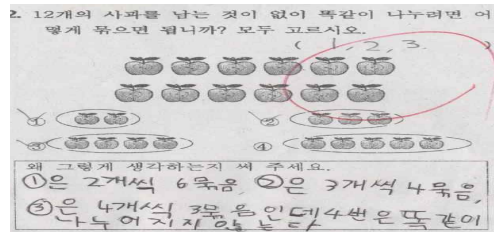 2. 12개의 사과를 남는 것이 없이 똑같이 나누려면 어
떻게 묶으면 됩니까? 모두 고르시오.
( 1, 2, 3. )
① ②
③ ④
왜 그렇게 생각하는지 써 주세요.
①은 2개씩 6묶음, ②은 3개씩 4묶음,
③은 4개씩 3묶음인데 4번은 똑같이
나누어지지 않는다